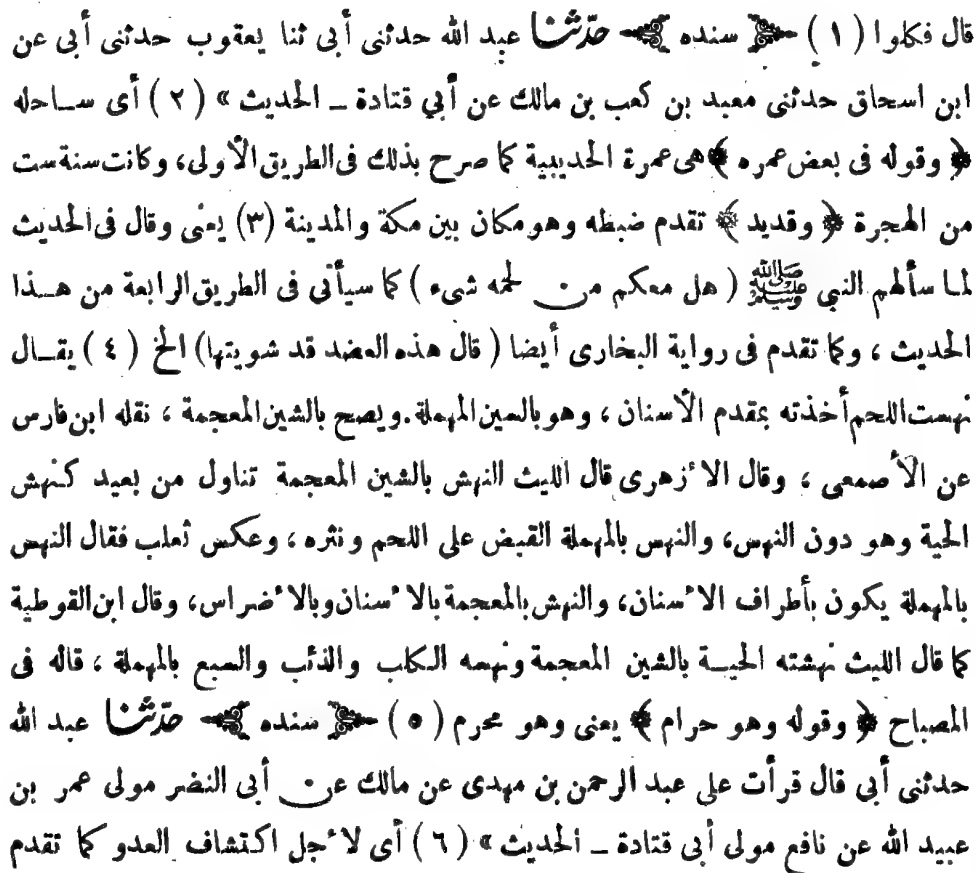 قال فكلوا (١) ﴿ سنده ﴾ حدّثنا عبد الله حدثنى أبى ثنا يعقوب حدثنى أبى عن
ابن اسحاق حدثنى معبد بن كعب بن مالك عن أبي قتادة ـ الحديث » (٢) أى ساحله
﴿ وقوله فى بعض عمره ﴾ هى عمرة الحديبية كما صرح بذلك فى الطريق الأولى، وكانت سنة ست
من الهجرة ﴿ وقديد ﴾ تقدم ضبطه وهو مكان بين مكة والمدينة (٣) يعنى وقال فى الحديث
لما سألهم النبي ﷺ ( هل معكم من لحمه شىء ) كما سيأتى فى الطريق الرابعة من هذا
الحديث ، وكما تقدم فى رواية البخارى أيضا ( قال هذه العضد قد شويتها) الخ (٤) يقال
نهست اللحم أخذته بمقدم الأسنان ، وهو بالسين المهملة.ويصح بالشين المعجمة ، نقله ابن فارس
عن الأصمعى ، وقال الأزهرى قال الليث النهش بالشين المعجمة تناول من بعيد كنهش
الحية وهو دون النهس، والنهس بالمهملة القبض على اللحم ونثره ، وعكس ثعلب فقال النهس
بالمهملة يكون بأطراف الأسنان، والنهش بالمعجمة بالأسنان وبالأضراس، وقال ابن القوطية
كما قال الليث نهشته الحية بالشين المعجمة ونهسه الكلب والذئب والسبع بالمهملة ، قاله فى
المصباح ﴿ وقوله وهو حرام ﴾ يعنى وهو محرم (٥) ﴿ سنده ﴾ حدّثنا عبد الله
حدثنى أبي قال قرأت على عبد الرحمن بن مهدى عن مالك عن أبى النضر مولى عمر بن
عبيد الله عن نافع مولى أبى قتادة ـ الحديث » (٦) أى لأجل اكتشاف العدو كما تقدم